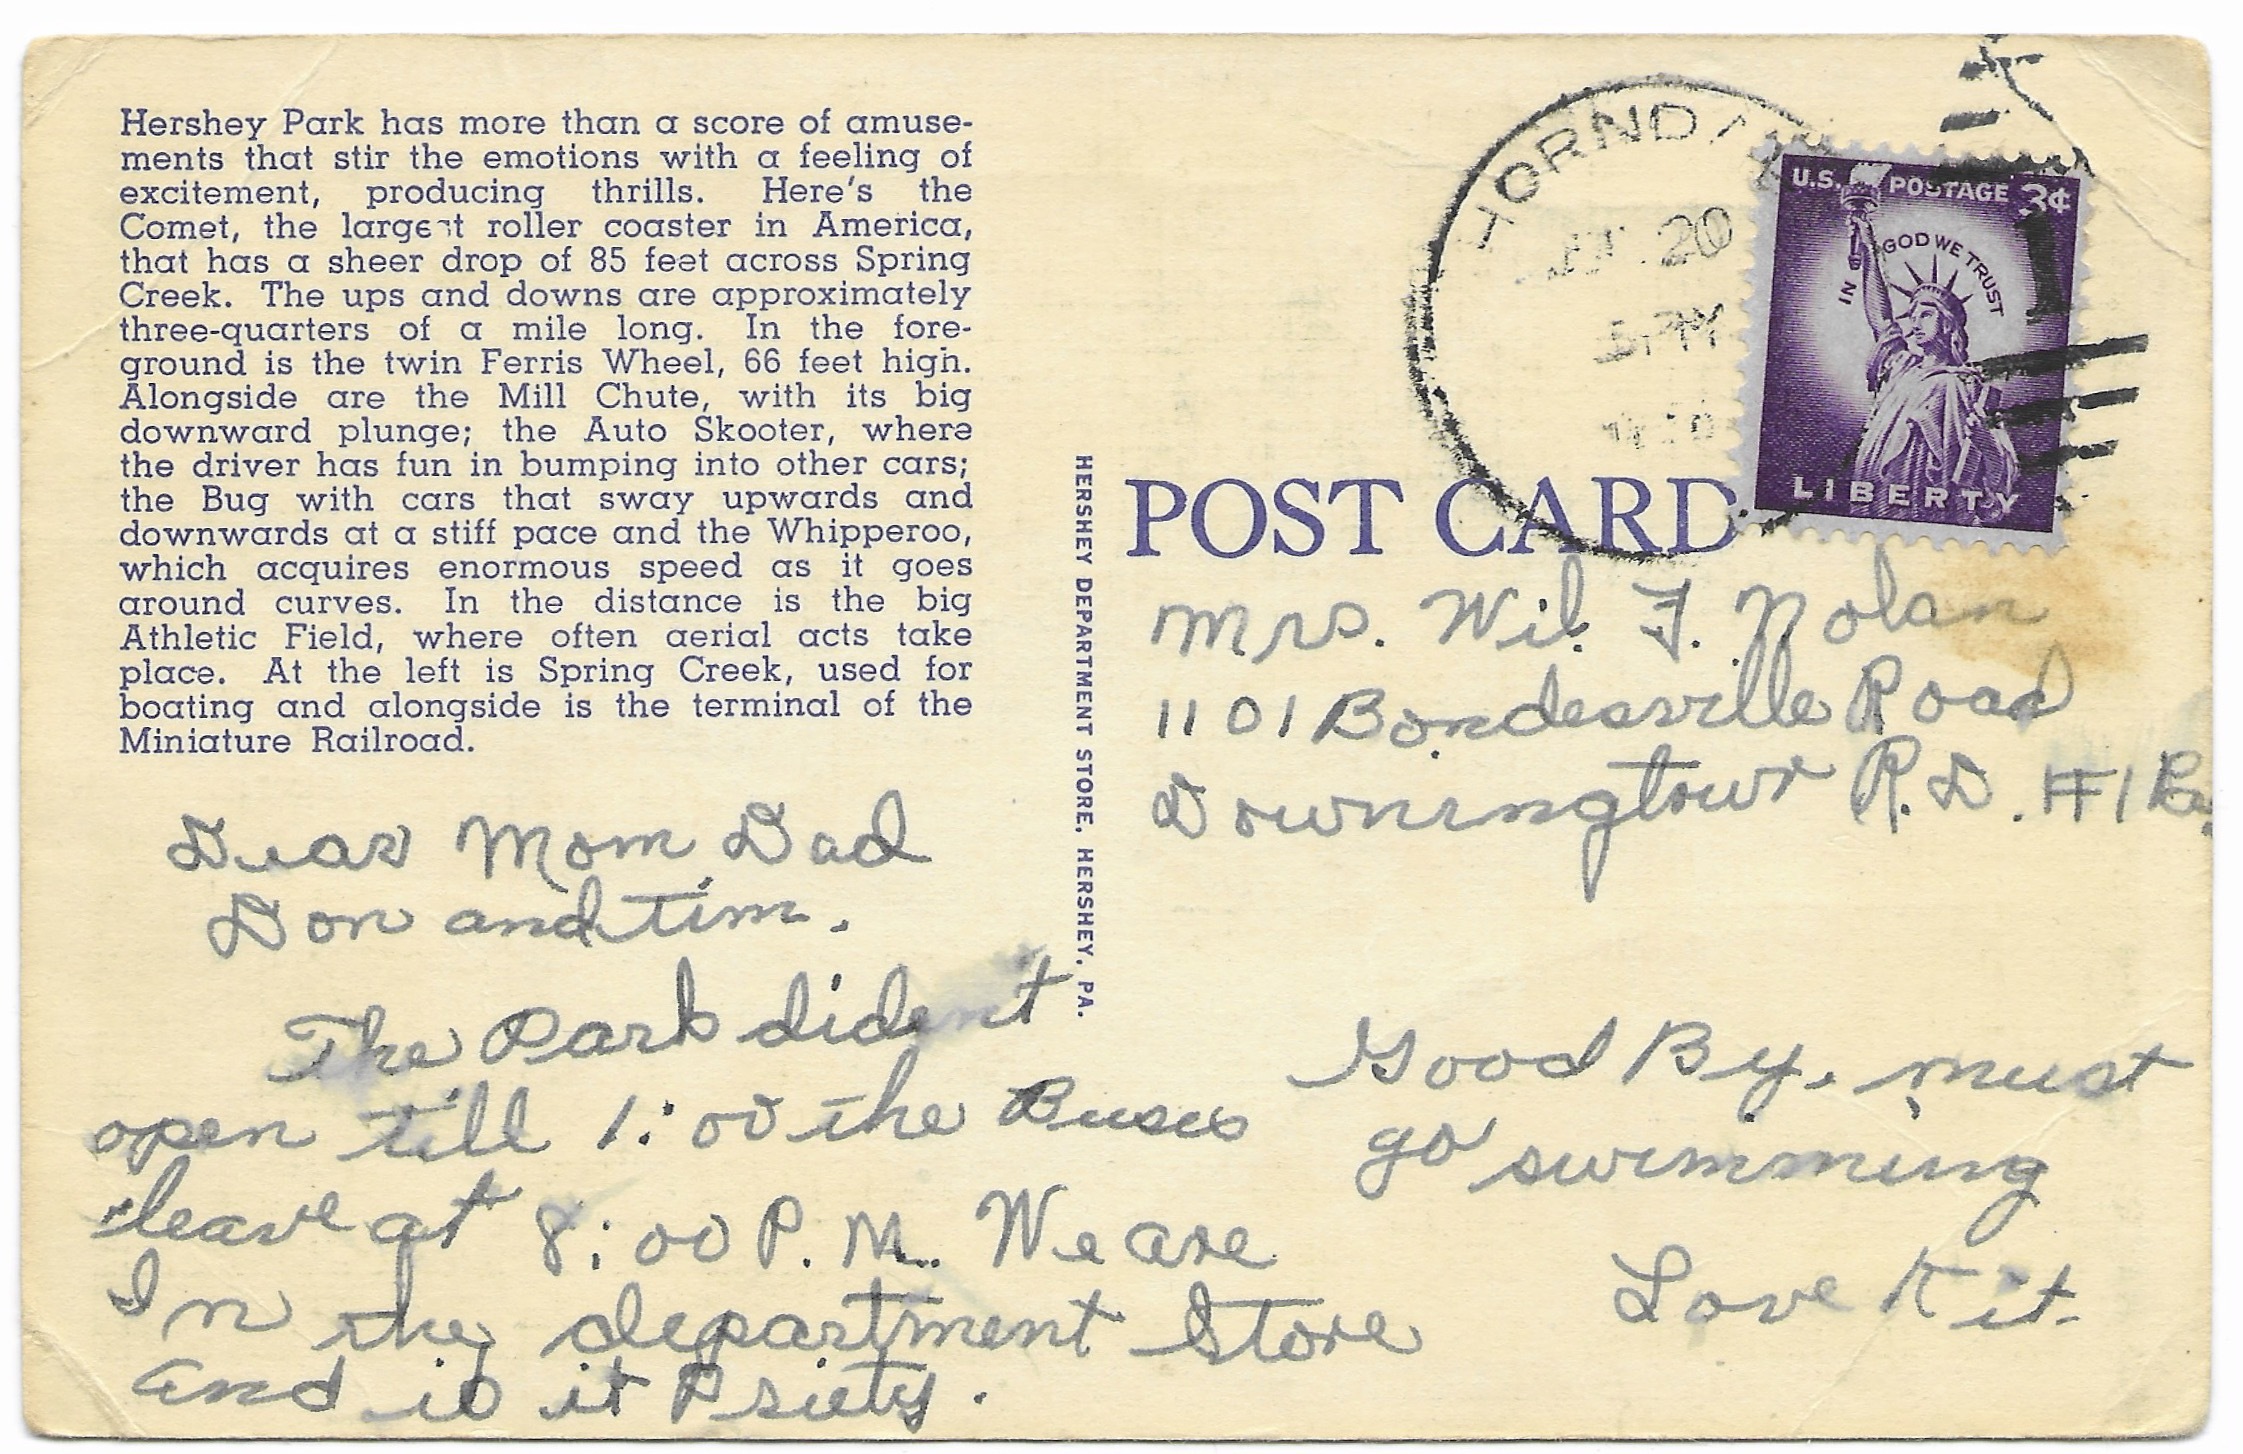 Hershey Park has more than a score of amuse-
ments that stir the emotions with a feeling of
excitement, producing thrills. Here's the
Comet, the largest roller coaster in America,
that has a sheer drop of 85 feet across Spring
Creek. The ups and downs are approximately
three-quarters of a mile long. In the fore-
ground is the twin Ferris Wheel, 66 feet high.
Alongside are the Mill Chute, with its big
downward plunge; the Auto Skooter, where
the driver has fun in bumping into other cars;
the Bug with cars that sway upwards and
downwards at a stiff pace and the Whipperoo,
which acquires enormous speed as it goes
around curves. In the distance is the big
Athletic Field, where often aerial acts take
place. At the left is Spring Creek, used for
boating and alongside is the terminal of the
Miniature Railroad.
Dear Mom Dad
Don and Tim.
The Park dident
open till 1:00 the Buses
leave at 8:00 P.M. We are
In the department Store
and is it Priety.
Good By, must
go swimming
Love Kit.
HERSHEY DEPARTMENT STORE, HERSHEY, PA.
POST CARD
20
5 PM
U.S. POSTAGE 3¢
IN GOD WE TRUST
LIBERTY
Mrs. Wil. F. Nolan
1101 Bondesville Road
Downingtown R.D. #1